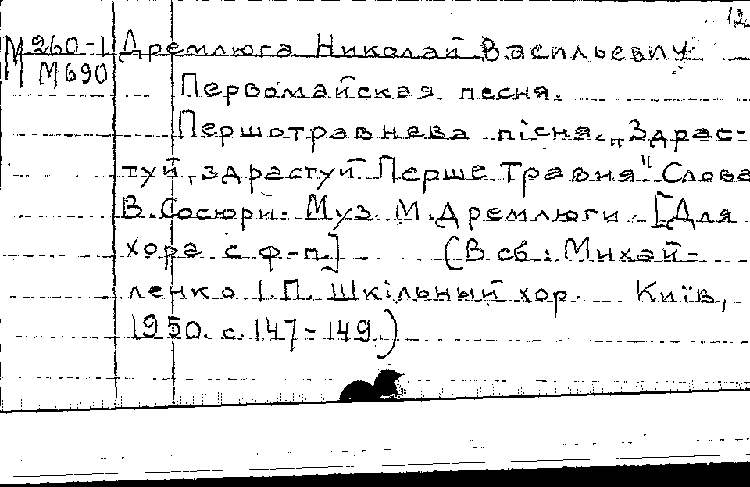 12
М260-1 Дремлюга Николай Васильевич
М690
Первомайская песня.
Першотравнева пісня. „Здрас-
туй, здрастуй Перше Травня" Слова
В. Сосюри. Муз. М. Дремлюги. [Для
хора с ф-п.] (В сб.: Михай-
ленко І.П. Шкільный хор. Київ,
1950. с. 147-149.)